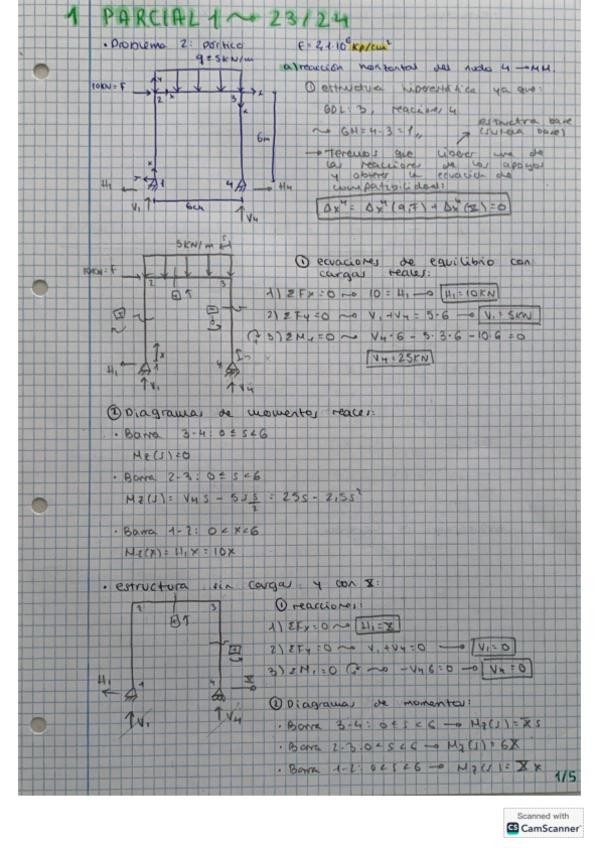 1 PARCIAL 1 ~> 23/24
· Problema 2: pórtico
E = 2,1·10⁶ kp/cm²
q = 5kN/m
a) reacción horizontal del nudo 4 → MM.
10kN = F
① estructura hiperestática ya que:
GDL: 3, reacciones 4
~> GH = 4-3 = 1,,
estructura base
→ Tenemos que liberar una de
las reacciones de los apoyos
y obtener la ecuación de
compatibilidad:
Δx⁴ = Δx⁴(q,F) + Δx⁴(X) = 0
2
3
6m
H₁
1
4
H₄
V₁
6m
V₄
5kN/m
10kN = F
2
3
H₁
1
V₁
4
V₄
① ecuaciones de equilibrio con
cargas reales:
1) ΣFx = 0 ~> 10 = H₁ → H₁ = 10kN
2) ΣFy = 0 ~> V₁ + V₄ = 5·6 → V₁ = 5kN
3) ΣM₁ = 0 ~> V₄·6 - 5·3·6 - 10·6 = 0
V₄ = 25kN
② Diagramas de momentos reales:
· Barra 3-4: 0 ≤ s < 6
Mz(s) = 0
· Barra 2-3: 0 ≤ s < 6
Mz(s) = V₄s - 5s s/2 = 25s - 2,5s²
· Barra 1-2: 0 < x < 6
Mz(x) = H₁x = 10x
· estructura sin cargas y con X:
2
3
H₁
1
4
X
V₁
V₄
① reacciones:
1) ΣFx = 0 ~> H₁ = X
2) ΣFy = 0 ~> V₁ + V₄ = 0 → V₁ = 0
3) ΣM₁ = 0 ~> -V₄6 = 0 → V₄ = 0
② Diagramas de momentos:
· Barra 3-4: 0 ≤ s < 6 → Mz(s) = X s
· Barra 2-3: 0 < s < 6 → Mz(s) = 6X
· Barra 1-2: 0 < s < 6 → Mz(s) = X x
1/5
Scanned with
CS CamScanner